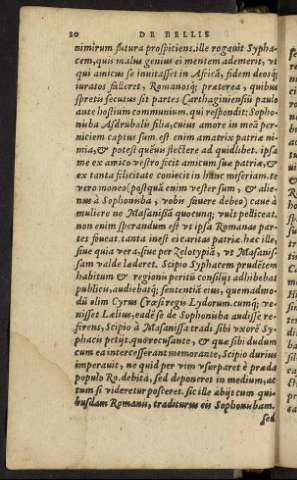 20 DE BELLIS
nimirum futura prospiciens. ille rogauit Sypha
cem, quis malus genius ei mentem ademerit, vt
qui amicus se inuitasset in Africã, fidem deosq;
iuratos falleret, Romanosq; præterea, quibus
spretis fecutus sit partes Carthaginiensiũ paulo
ante hostium communium. qui respondit: Sopho
nuba Asdrubalis filia, cuius amore in meã per-
niciem captus sum. est enim amatrix patriæ ni-
mia, & potest quẽuis flectere ad quidlibet. ipsa
me ex amico vestro fecit amicum suæ patriæ, &
ex tanta felicitate coniecit in hãc miseriam. te
vero moneo (postquã enim vester sum, & alie-
nus à Sophonuba, vobis fauere debeo) caue à
muliere ne Masanissã quocunq; vult pelliceat.
non enim sperandum est vt ipsa Romanas par-
tes foueat. tanta inest ei caritas patriæ. hæc ille,
siue quia vera, siue per Zelotypiã, vt Masanis-
sam valde læderet. Scipio Syphacem prudẽtem
habitum & regionis peritũ consilijs adhibebat
publicis, audiebatq; sententiã eius, quemadmo-
dũ olim Cyrus Crœsi regis Lydorum. cumq; ve-
nisset Lælius, eadẽ se de Sophonuba audisse re-
ferens, Scipio à Masanissa tradi sibi vxorẽ Sy-
phacis petijt. quo recusante, & quæ sibi dudum
cum ea intercesserant memorante, Scipio durius
imperauit, ne quid per vim vsurparet è præda
populo Ro. debita, sed deponeret in medium, ac
tum si videretur posceret. sic ille abijt cum qui-
busdam Romanis, traditurus eis Sophonubam.
sed